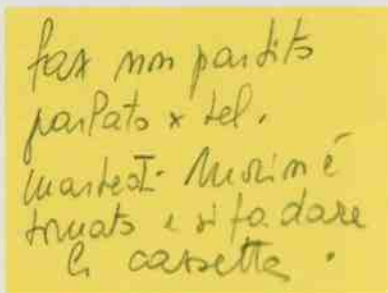 fax non partito
parlato x tel.
martedì - Morini è
tornato e si fa dare
la cassetta.